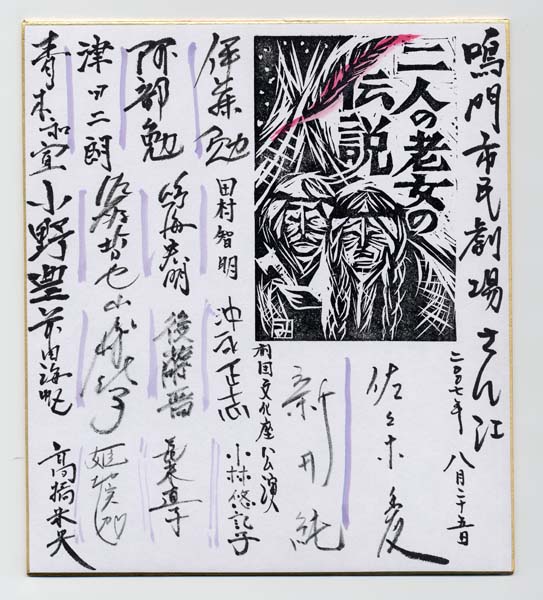 鳴門市民劇場さん江
二〇〇七年 八月二十五日
二人の老女の
伝説
佐々木愛
新井純
劇団文化座公演
伊藤勉
田村智明
沖永正志
小林悠記子
阿部勉
鳴海宏明
後藤晋
高木直子
津田二朗
青木和宣
小野豊
前田海帆
高橋未央